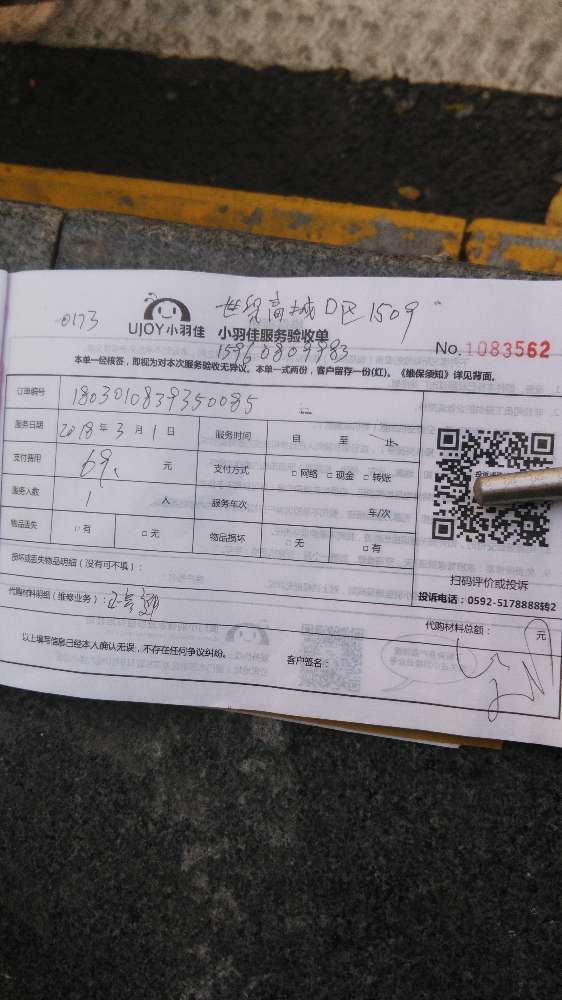 0173
世贸商城D区1509
UJOY小羽佳
小羽佳服务验收单
No. 1083562
15960809983
本单一经核签，即视为对本次服务验收无异议。本单一式两份，客户留存一份(红)。《维保须知》详见背面。
订单编号 1803010839350085
服务日期 2018年3月1日 服务时间 自 至 止
支付费用 69. 元 支付方式 □网络 □现金 □转账
服务人数 1 人 服务车次 车/次
物品丢失 □有 □无 物品损坏 □无 □有
扫码评价或投诉
投诉电话：0592-5178888转2
损坏或丢失物品明细（没有可不填）：
代购材料明细（维修业务）：
代购材料总额： 元
以上填写信息已经本人确认无误，不存在任何争议纠纷。
客户签名：